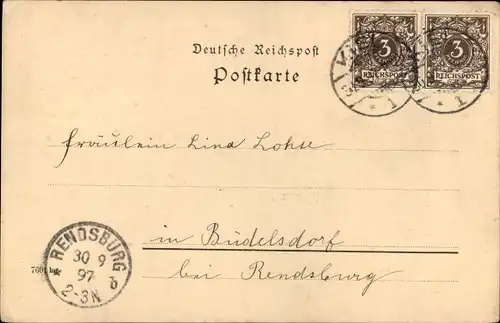 3 3
REICHSPOST REICHSPOST
KIEL
* 1 * 1
Deutsche Reichspost
Postkarte
Fräulein Lina Lohse
in Büdelsdorf
bei Rendsburg
* RENDSBURG b
30 9
97
2-3N